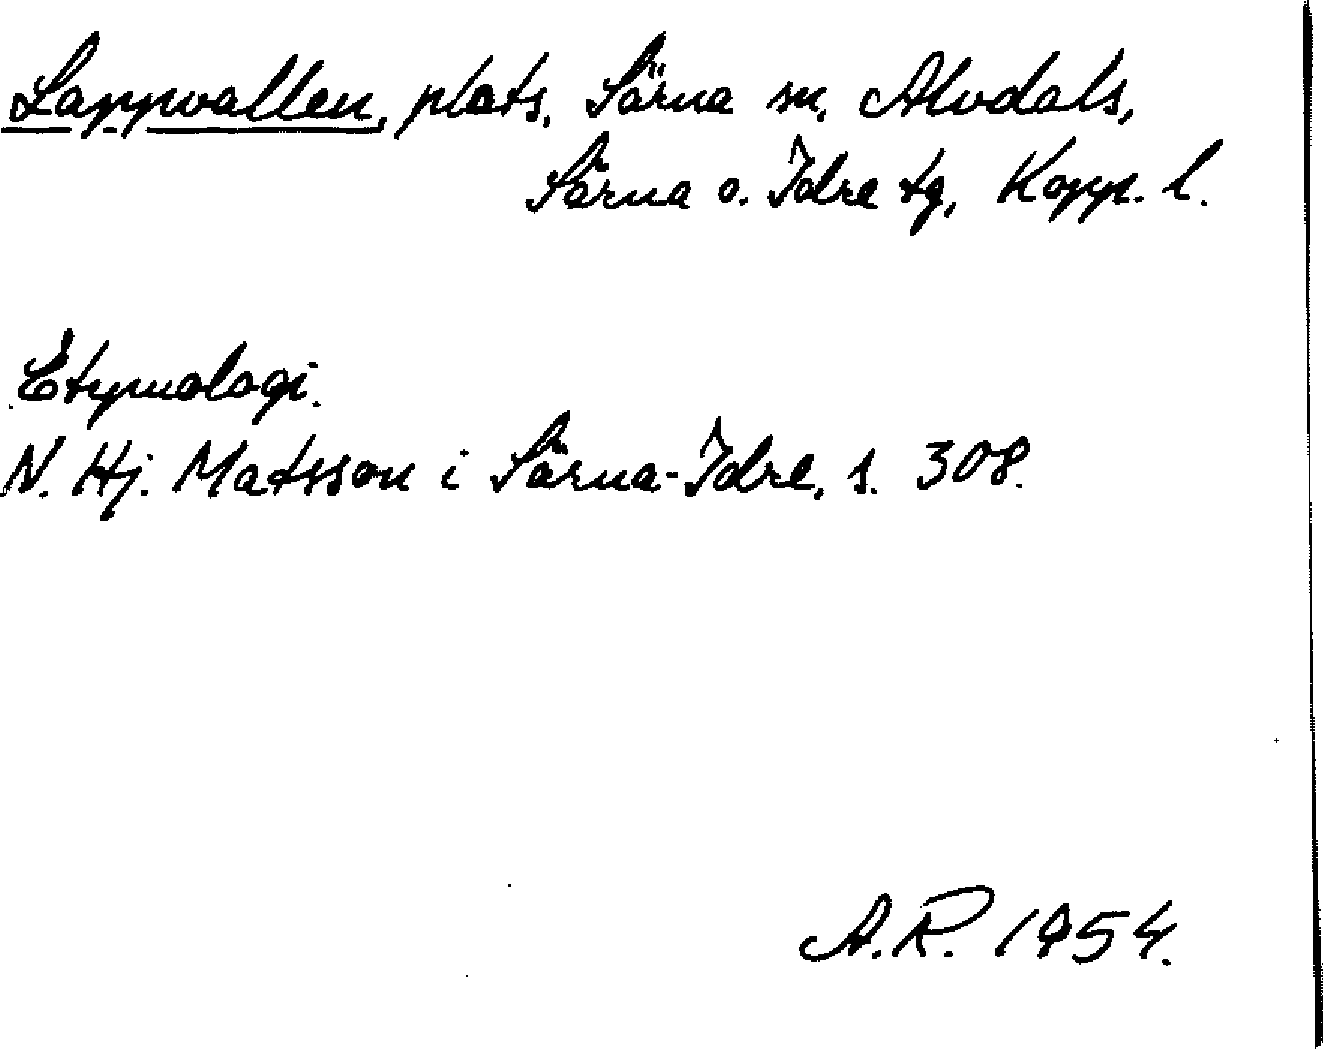 Lappvallen, plats, Särna sn, Älvdals,
Särna o. Idre tg, Kopp. l.
Etymologi.
N. Hj. Matsson i Särna-Idre, s. 308.
A.R. 1954.